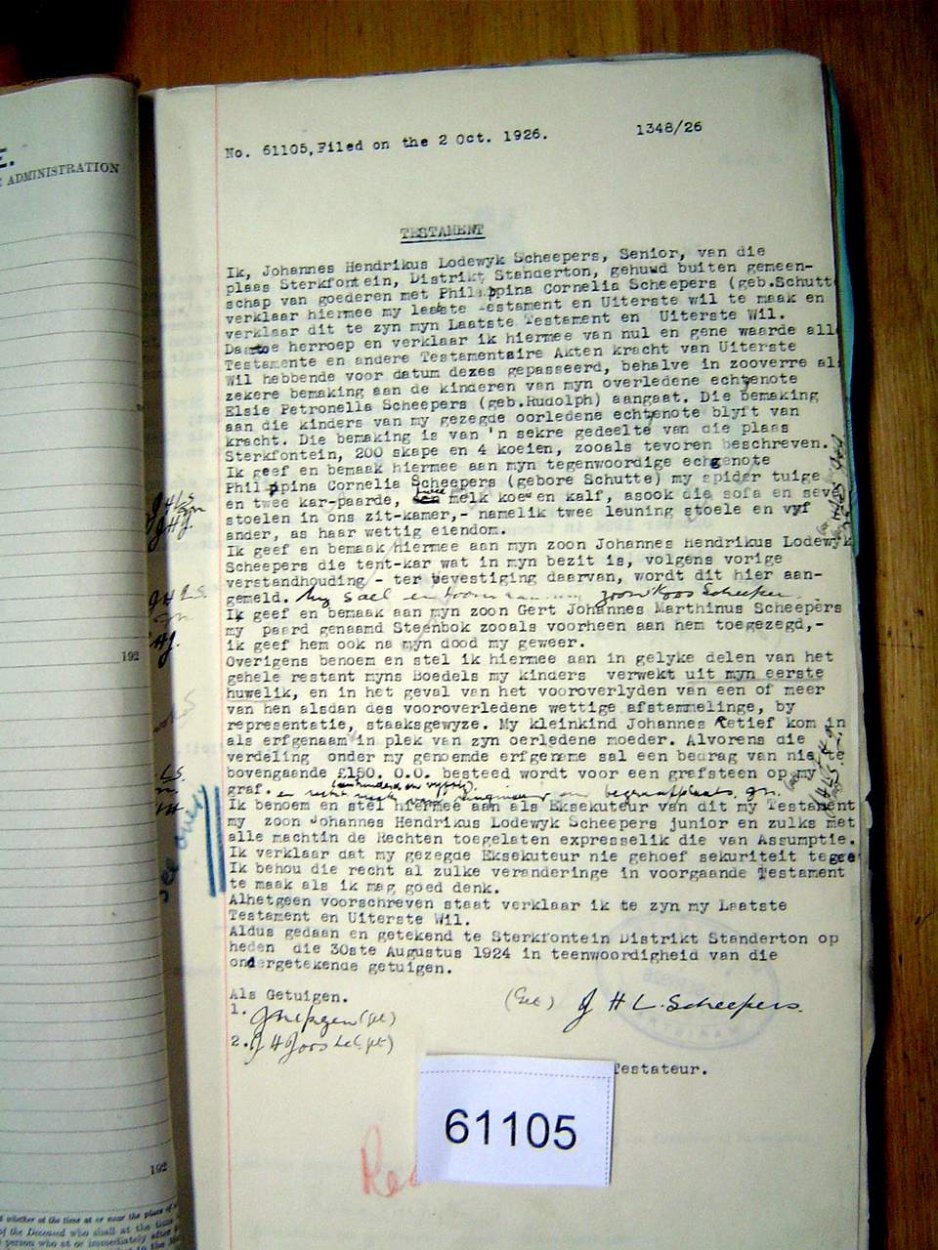 E.
ADMINISTRATION
No. 61105, Filed on the 2 Oct. 1926. 1348/26
TESTAMENT
Ik, Johannes Hendrikus Lodewyk Scheepers, Senior, van die
plaas Sterkfontein, Distrikt Standerton, gehuwd buiten gemeen-
schap van goederen met Philippina Cornelia Scheepers (geb.Schutt
verklaar hiermee my laatste Testament en Uiterste wil te maak en
verklaar dit te zyn myn Laatste Testament en Uiterste Wil.
Daartoe herroep en verklaar ik hiermee van nul en gene waarde all
Testamente en andere Testamentaire Akten kracht van Uiterste
Wil hebbende voor datum dezes gepasseerd, behalve in zooverre als
zekere bemaking aan de kinderen van myn overledene echtgenote
Elsie Petronella Scheepers (geb.Rudolph) aangaat. Die bemaking
aan die kinders van my gezegde oorledene echtgenote blyft van
kracht. Die bemaking is van 'n sekre gedeelte van die plaas
Sterkfontein, 200 skape en 4 koeien, zooals tevoren beschreven.
Ik geef en bemaak hiermee aan myn tegenwoordige echgenote
Philippina Cornelia Scheepers (gebore Schutte) my spider tuige
en twee kar-paarde, twee melk koe en kalf, asook die sofa en seve
stoelen in ons zit-kamer,- namelik twee leuning stoele en vyf
ander, as haar wettig eiendom.
Ik geef en bemaak hiermee aan myn zoon Johannes Hendrikus Lodewyk
Scheepers die tent-kar wat in myn bezit is, volgens vorige
verstandhouding - ter bevestiging daarvan, wordt dit hier aan-
gemeld. My sael en toom aan my zoon Koos Scheepers.
Ik geef en bemaak aan myn zoon Gert Johannes Marthinus Scheepers
my paard genaamd Steenbok zooals voorheen aan hem toegezegd,-
ik geef hem ook na myn dood my geweer.
Overigens benoem en stel ik hiermee aan in gelyke delen van het
gehele restant myns Boedels my kinders verwekt uit myn eerste
huwelik, en in het geval van het vooroverlyden van een of meer
van hen alsdan des vooroverledene wettige afstammelinge, by
representatie, staaksgewyze. My kleinkind Johannes Retief kom in
als erfgenaam in plek van zyn oerledene moeder. Alvorens die
verdeling onder my genoemde erfgename sal een bedrag van nie te
bovengaande £150. 0.0. besteed wordt voor een grafsteen op my
(eenhonderd en vyftig)
graf. en
Ik benoem en stel hiermee aan als Eksekuteur van dit my Testament
my zoon Johannes Hendrikus Lodewyk Scheepers junior en zulks met
alle machtin de Rechten toegelaten expresselik die van Assumptie.
Ik verklaar dat my gezegde Eksekuteur nie gehoef sekuriteit tegee
Ik behou die recht al zulke veranderinge in voorgaande Testament
te maak als ik mag goed denk.
Alhetgeen voorschreven staat verklaar ik te zyn my Laatste
Testament en Uiterste Wil.
Aldus gedaan en getekend te Sterkfontein Distrikt Standerton op
heden die 30ste Augustus 1924 in teenwoordigheid van die
ondergetekende getuigen.
Als Getuigen.
(Get) J H L Scheepers.
1.
2. J H
Testateur.
61105
See over
192
192